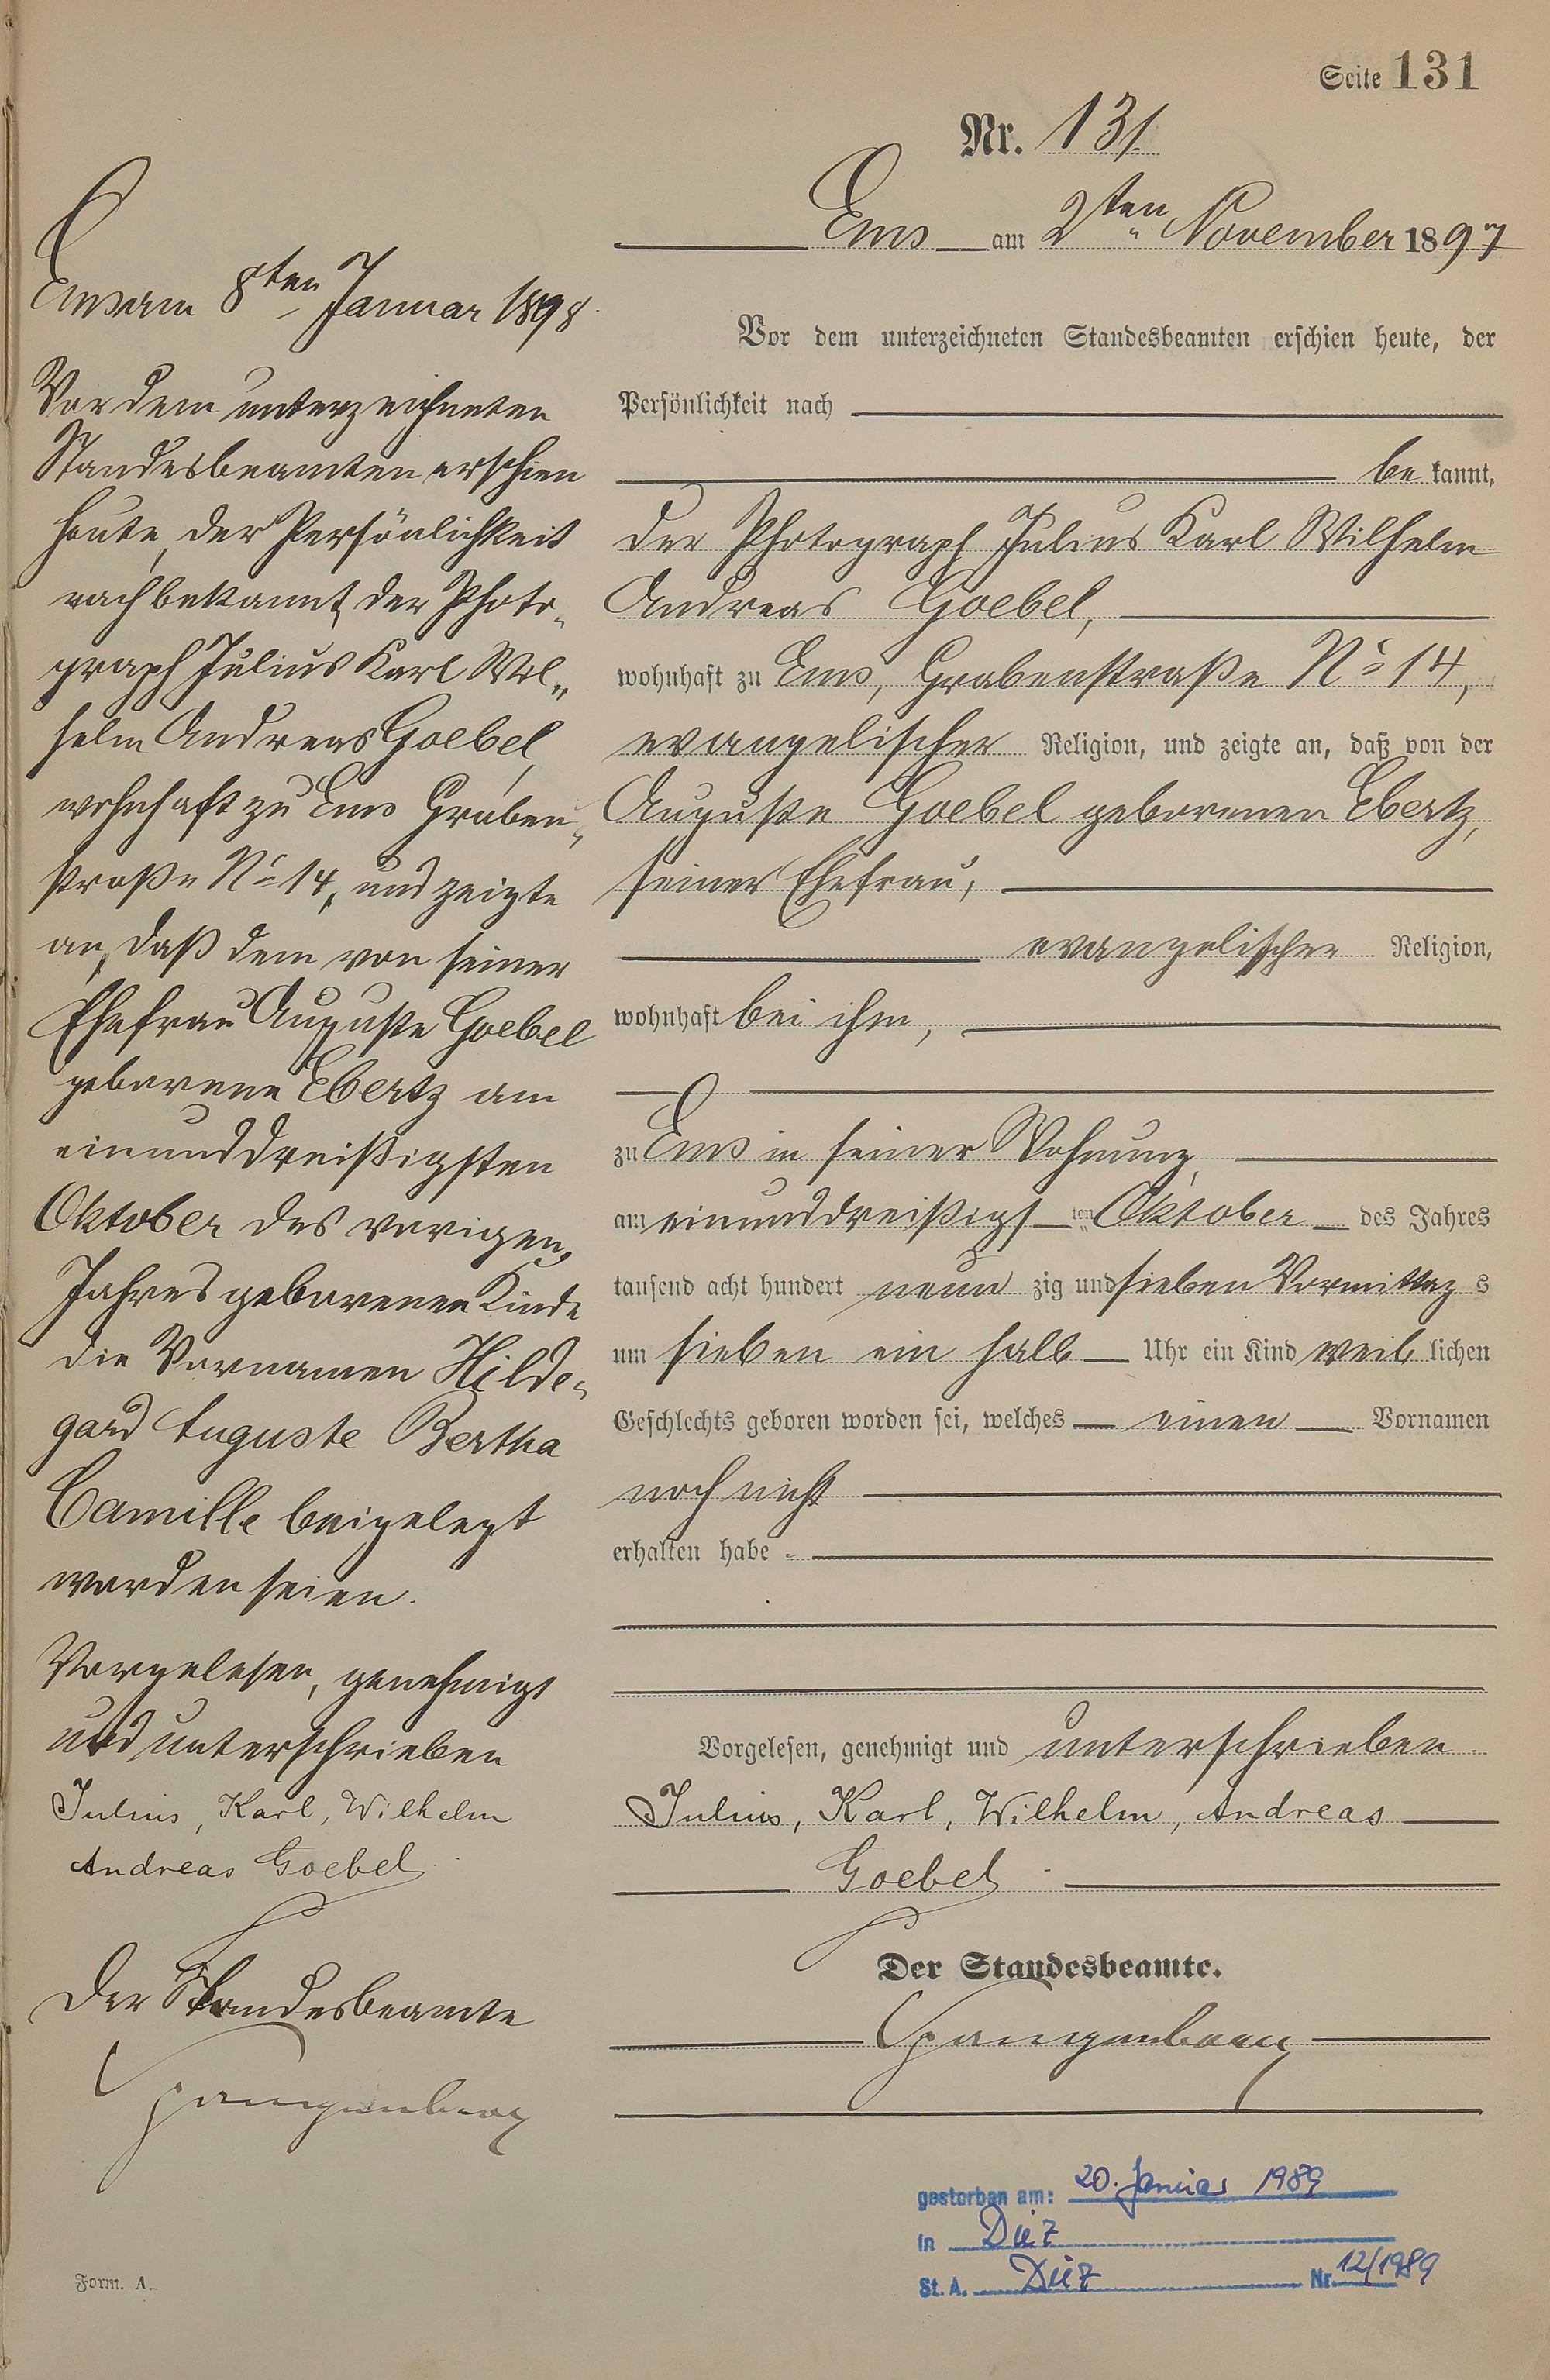 Seite 131
Nr. 131
Ems am 2ten November 1897
Vor dem unterzeichneten Standesbeamten erschien heute, der
Persönlichkeit nach
be kannt,
der Photograph Julius Karl Wilhelm
Andreas Goebel,
wohnhaft zu Ems, Grabenstraße No 14,
evangelischer Religion, und zeigte an, daß von der
Auguste Goebel geborenen Ebertz,
seiner Ehefrau,
evangelischer Religion,
wohnhaft bei ihm,
zu Ems in seiner Wohnung,
am einunddreißigs ten Oktober des Jahres
tausend acht hundert neun zig und sieben Vormittag s
um sieben ein halb Uhr ein Kind weib lichen
Geschlechts geboren worden sei, welches einen Vornamen
noch nicht
erhalten habe.
Vorgelesen, genehmigt und unterschrieben.
Julius, Karl, Wilhelm, Andreas
Goebel
Der Standesbeamte.
Spangenberg
Ems am 8ten Januar 1898.
Vor dem unterzeichneten
Standesbeamten erschien
heute, der Persönlichkeit
nach bekannt, der Photo-
graph Julius Karl Wil-
helm Andreas Goebel,
wohnhaft zu Ems Graben-
straße No 14, und zeigte
an, daß dem von seiner
Ehefrau Auguste Goebel
geborene Ebertz am
einunddreißigsten
Oktober des vorigen
Jahres geborenen Kinde
die Vornamen Hilde-
gard Auguste Bertha
Camille beigelegt
worden seien.
Vorgelesen, genehmigt
und unterschrieben
Julius, Karl, Wilhelm
Andreas Goebel
Der Standesbeamte
Spangenberg
gestorben am: 20. Januar 1989
in Diez
St. A. Diez Nr. 12/1989
Form. A.